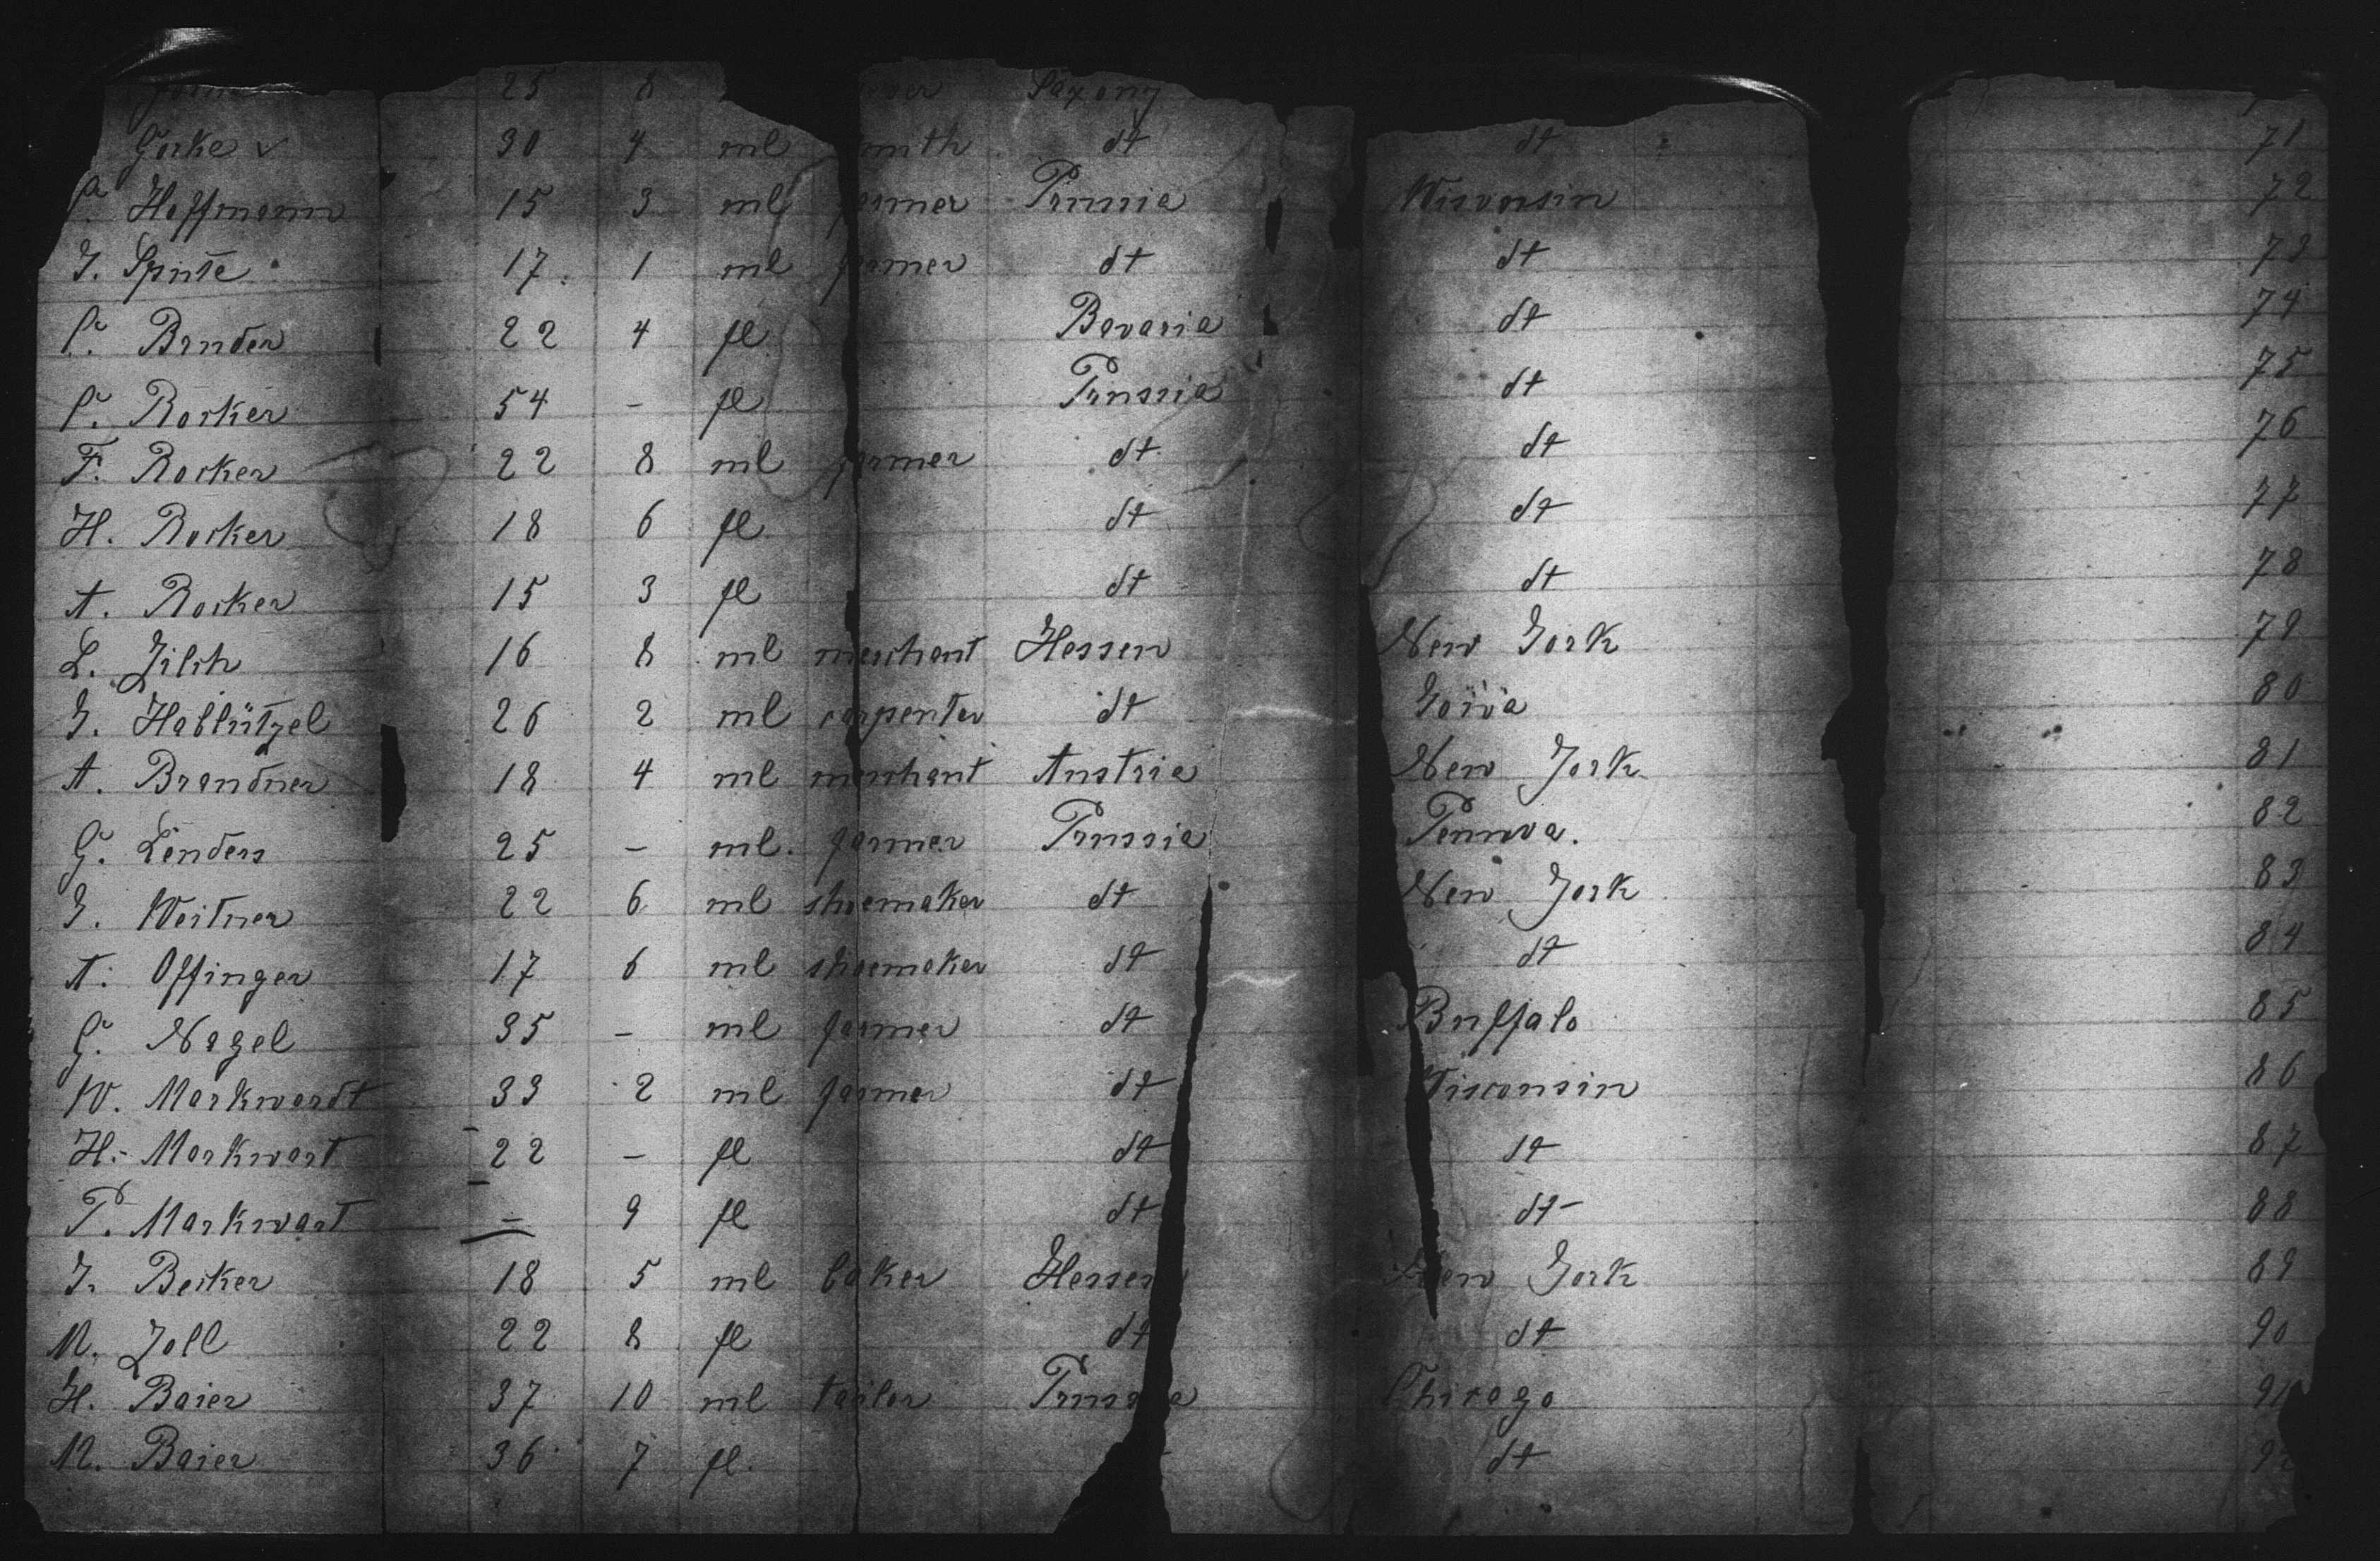 25 8 Saxony
Görke 30 4 ml dt dt 71
Hoffmann 15 3 ml farmer Prussia Wisconsin 72
J. 17 1 ml farmer dt dt 73
Bruder 22 4 fl Bavaria dt 74
Rocker 54 - fl Prussia dt 75
F. Rocker 22 8 ml farmer dt dt 76
H. Rocker 18 6 fl dt dt 77
A. Rocker 15 3 fl dt dt 78
L. Zilch 16 8 ml merchant Hessen New York 79
J. Hablützel 26 2 ml carpenter dt 80
A. Brandner 18 4 ml merchant Austria New York 81
G. Lenders 25 - ml. farmer Prussia 82
J. Weitner 22 6 ml shoemaker dt New York 83
A. Offinger 17 6 ml shoemaker dt dt 84
G. Nagel 35 - ml farmer dt Buffalo 85
W. Markwardt 33 2 ml farmer dt Wisconsin 86
H. Markwart 22 - fl dt dt 87
P. Markwart - 9 fl dt dt 88
J. Becker 18 5 ml baker Hessen New York 89
M. Zoll 22 8 fl dt dt 90
H. Baier 37 10 ml tailor Prussia Chicago 91
M. Baier 36 7 fl. dt 92